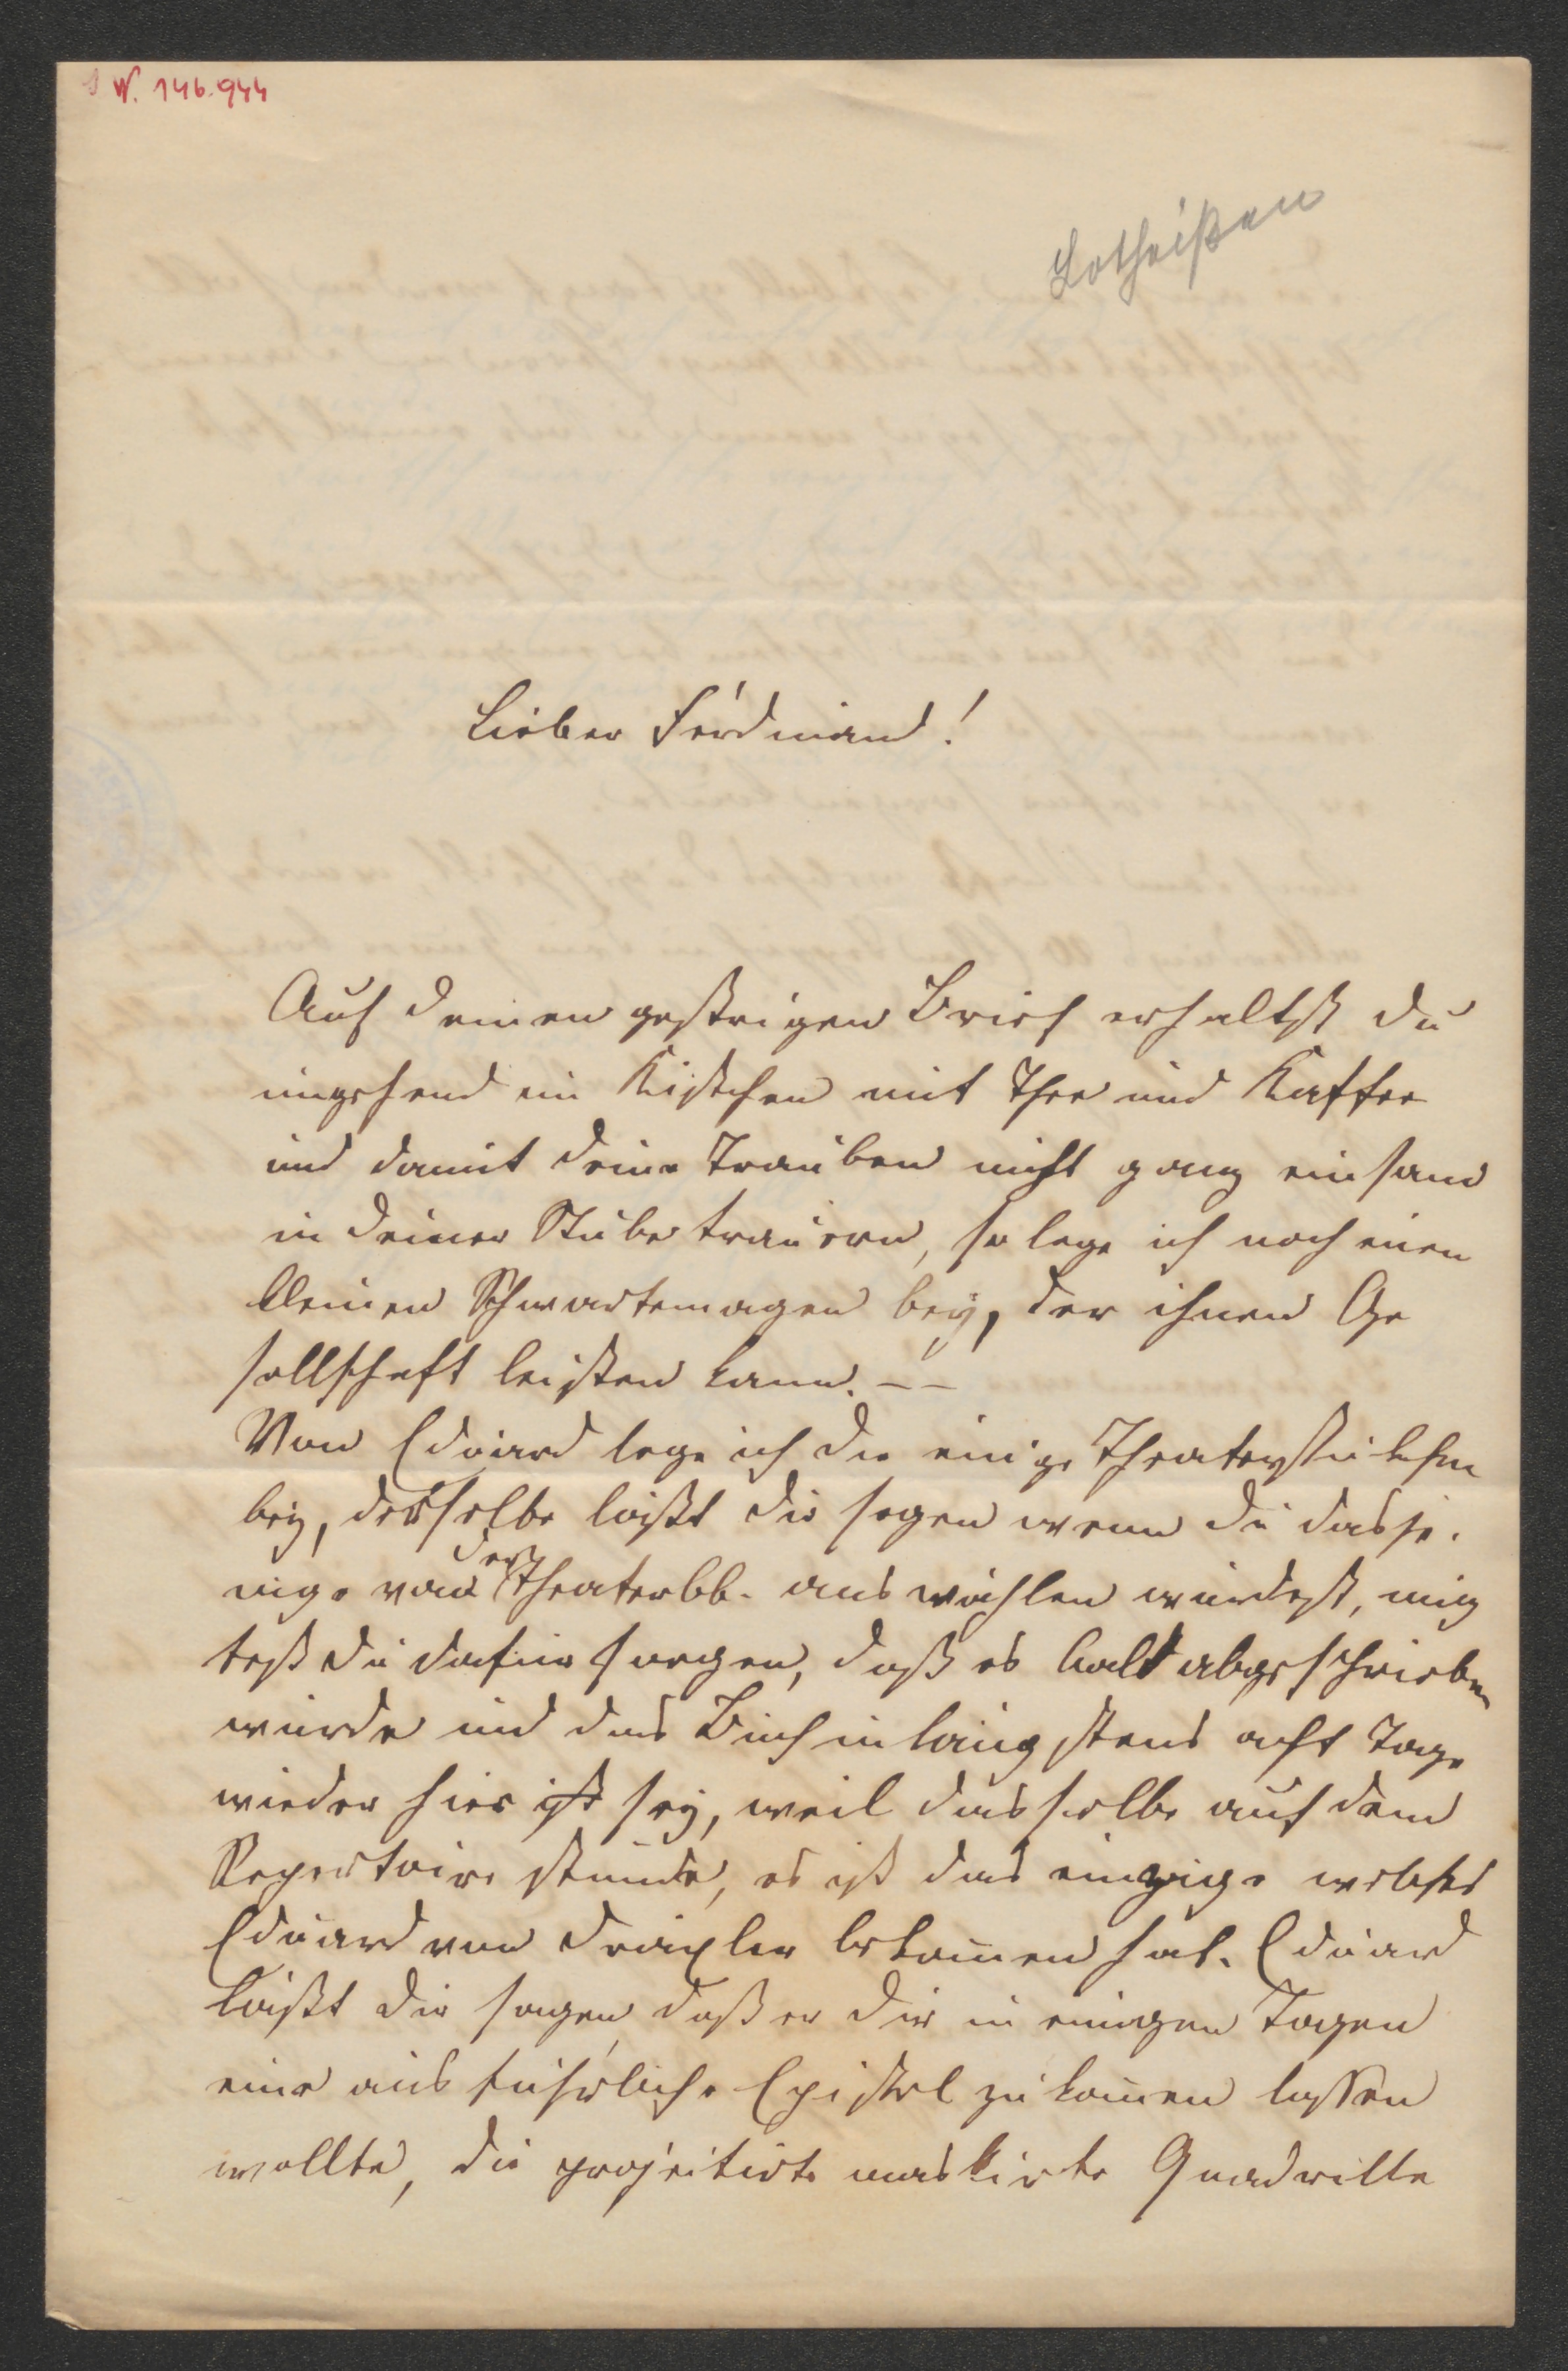 W. 146.944
Lotheißen
Lieber Ferdinand!
Auf deinen gestrigen Brief erhaltst du
umgehend ein Kistchen mit Thee und Kaffee
und damit deine Trauben nicht ganz einsam
in deiner Stube trauern, so lege ich noch einen
kleinen Schwartemagen bey, der ihnen Ge
sellschaft leisten kann. – –
Von Eduard lege ich dir einige Theaterstückchen
bey, derselbe läßt dir sagen wenn du dasje-
nige von der Theaterbb. auswählen würdest, müß
test du dafür sorgen, daß es bald abgeschrieben
würde und das Buch in längstens acht Tage
wieder hier ist sey, weil dasselbe auf dem
Repertoire stünde, es ist das einzige welches
Eduard von Dräxler bekommen hat. Eduard
läßt dir sagen daß er dir in einigen Tagen
eine ausführliche Epistel zukommen lassen
wollte, die projectirte maskirte Quadrille